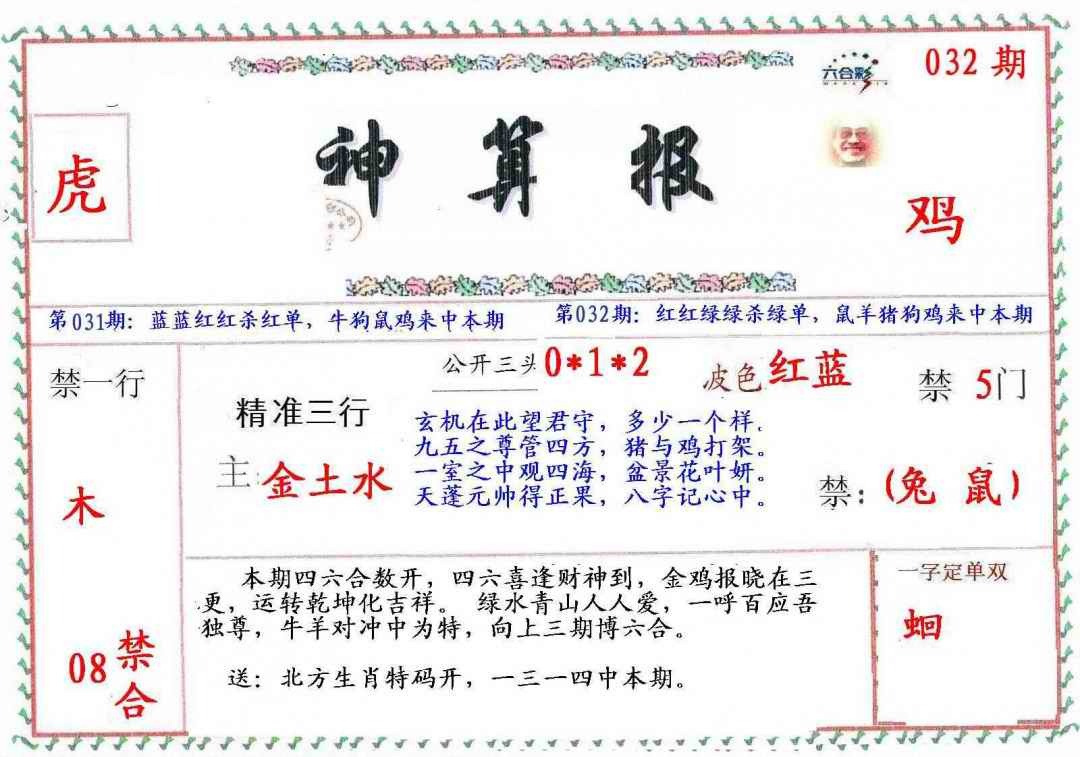 六合彩
032 期
虎
神算报
鸡
第031期：蓝蓝红红杀红单，牛狗鼠鸡来中本期
第032期：红红绿绿杀绿单，鼠羊猪狗鸡来中本期
禁一行
木
08 禁合
公开三头 0*1*2
波色 红蓝
禁 5门
精准三行
主: 金土水
玄机在此望君守，多少一个样.
九五之尊管四方，猪与鸡打架。
一室之中观四海，盆景花叶妍。
天蓬元帅得正果，八字记心中。
禁：(兔 鼠)
本期四六合数开，四六喜逢财神到，金鸡报晓在三
更，运转乾坤化吉祥。 绿水青山人人爱，一呼百应吾
独尊，牛羊对冲中为特，向上三期博六合。
送：北方生肖特码开，一三一四中本期。
一字定单双
蛔